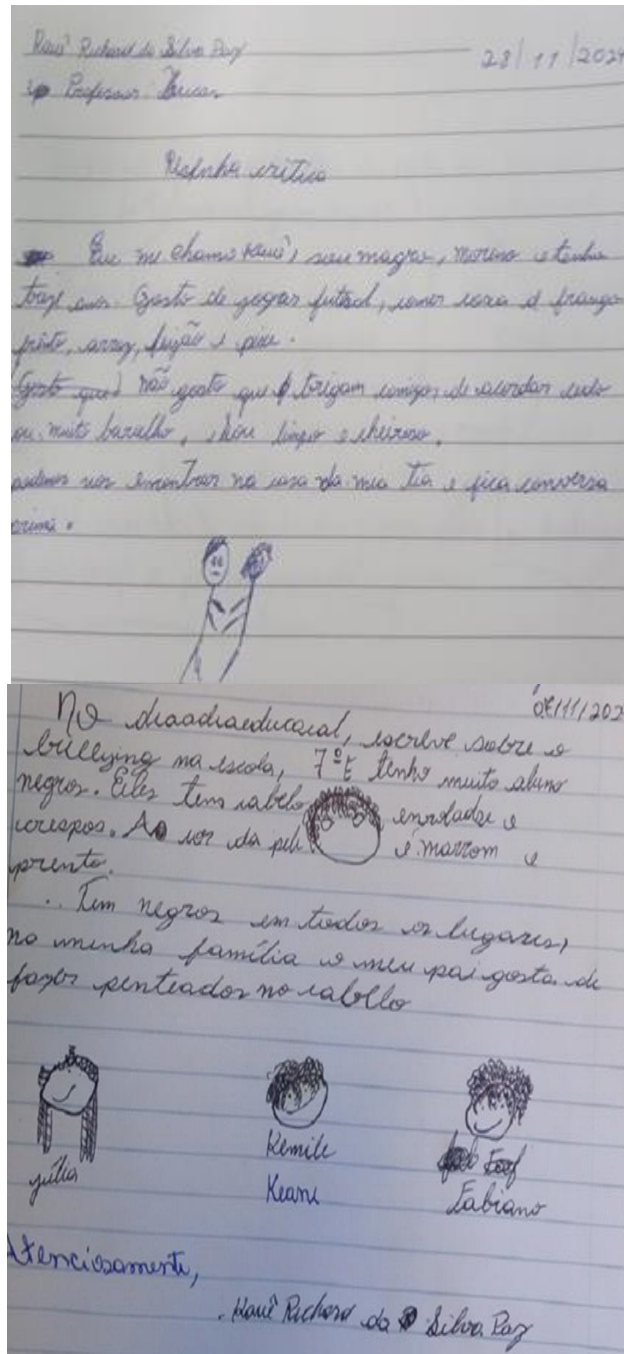 Kauê Richard da Silva Paz 28/11/2024
Professor
Resinha critica
Eu me chamo Kauê, sou magro, moreno e tenho
treze anos. Gosto de jogar futebol, comer coxa d frango
frito, arroz, feijão e pixe.
Gosto que não gosto que brigam comigo, de acordar cedo
ou muito barulho, limpo e cheiroso.
podemos nos encontrar na casa da mia tia e fica conversa
No escreve sobre o
bullying na escola, 7ºE tenho muito aluno
negros. Eles tem cabelo enrolados e
crespos. A cor da pele é marrom e
prento.
Tem negros em todos os lugares,
no minha família o meu pai gosta de
fazer penteados no cabello
Júlia
Kemile
Keani
Fabiano
Atenciosamente,
Kauê Richard da Silva Paz